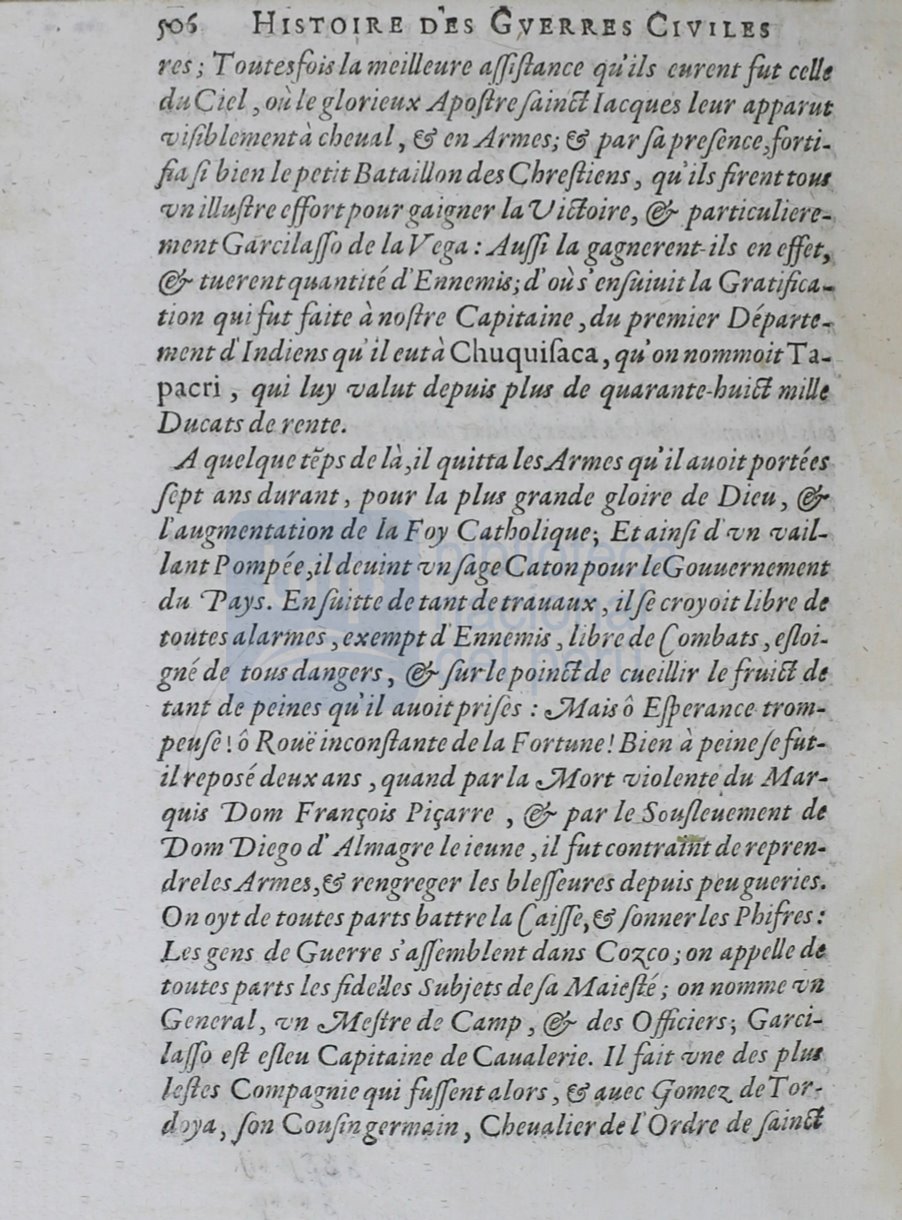 506 HISTOIRE DES GVERRES CIVILES
res; Toutesfois la meilleure aſſiſtance qu'ils eurent fut celle
du Ciel, où le glorieux Apoſtre ſainct Iacques leur apparut
viſiblement à cheual, & en Armes; & par ſa preſence, forti-
fia ſi bien le petit Bataillon des Chreſtiens, qu'ils firent tous
vn illuſtre effort pour gaigner la Victoire, & particuliere-
ment Garcilaſſo de la Vega: Auſſi la gagnerent-ils en effet,
& tuerent quantité d'Ennemis; d'où s'enſuiuit la Gratifica-
tion qui fut faite à noſtre Capitaine, du premier Départe-
ment d'Indiens qu'il eut à Chuquiſaca, qu'on nommoit Ta-
pacri, qui luy valut depuis plus de quarante-huict mille
Ducats de rente.
A quelque tẽps de là, il quitta les Armes qu'il auoit portées
ſept ans durant, pour la plus grande gloire de Dieu, &
l'augmentation de la Foy Catholique; Et ainſi d'vn vail-
lant Pompée, il deuint vn ſage Caton pour le Gouuernement
du Pays. En ſuitte de tant de trauaux, il ſe croyoit libre de
toutes alarmes, exempt d'Ennemis, libre de Combats, eſloi-
gné de tous dangers, & ſur le poinct de cueillir le fruict de
tant de peines qu'il auoit priſes: Mais ô Eſperance trom-
peuſe! ô Rouë inconſtante de la Fortune! Bien à peine ſe fut-
il repoſé deux ans, quand par la Mort violente du Mar-
quis Dom François Piçarre, & par le Souſleuement de
Dom Diego d'Almagre le ieune, il fut contraint de repren-
dre les Armes, & rengreger les bleſſeures depuis peu gueries.
On oyt de toutes parts battre la Caiſſe, & ſonner les Phifres:
Les gens de Guerre s'aſſemblent dans Cozco; on appelle de
toutes parts les fidelles Subjets de ſa Maieſté; on nomme vn
General, vn Meſtre de Camp, & des Officiers; Garci-
laſſo eſt eſleu Capitaine de Caualerie. Il fait vne des plus
leſtes Compagnie qui fuſſent alors, & auec Gomez de Tor-
doya, ſon Couſin germain, Cheualier de l'Ordre de ſainct
biblioteca
nacional
del perú